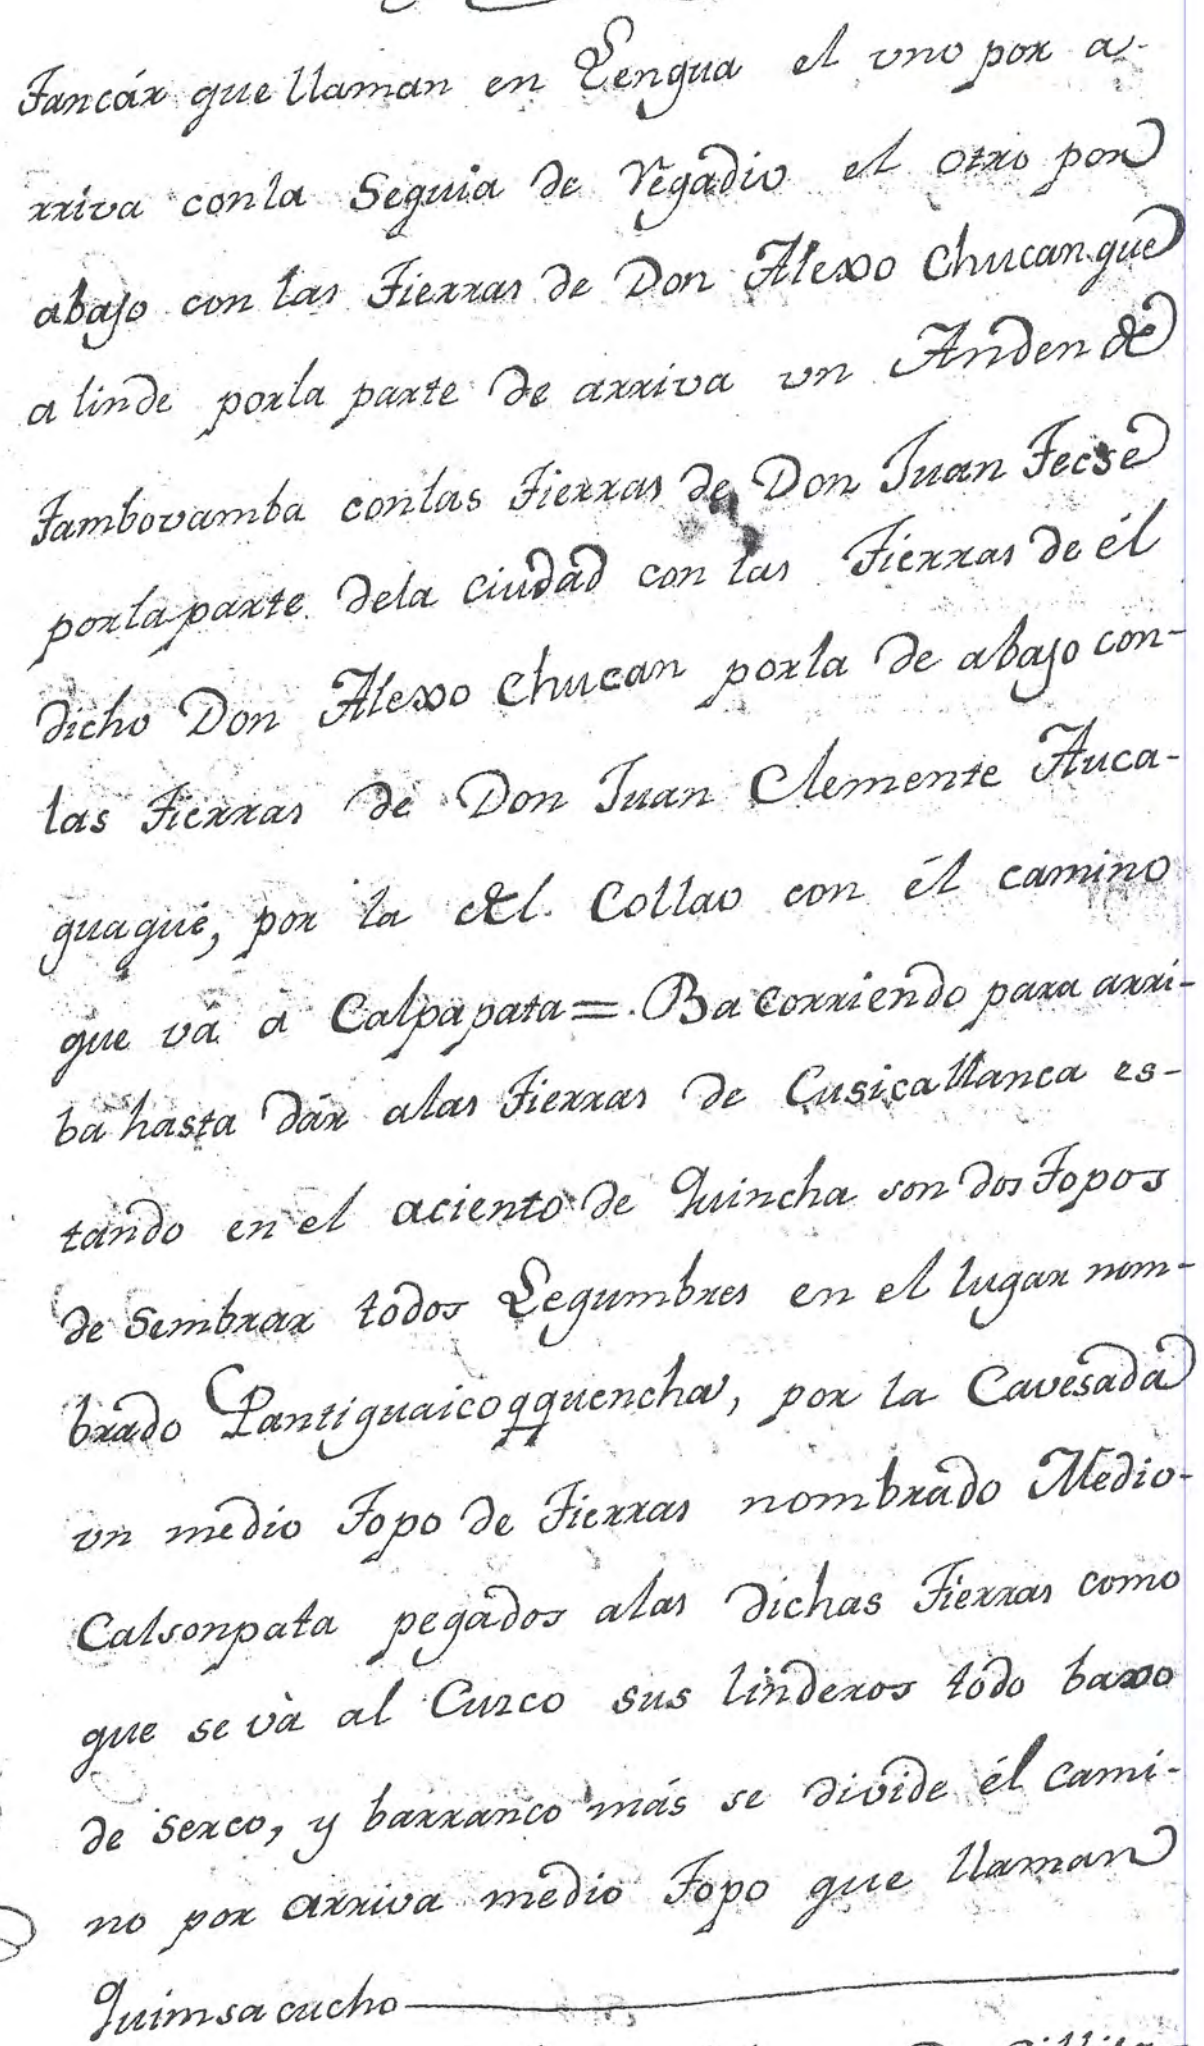 Tancár que llaman en Lengua el vno por a-
rriva con la Sequia de Regadio el otro por
abajo con las Tierras de Don Alexo Chucan que
a linde por la parte de arriva un Anden de
Tambovamba con las Tierras de Don Juan Tecse
por la parte dela Ciudad con las Tierras de él
dicho Don Alexo Chucan por la de abajo con-
las Tierras de Don Juan Clemente Auca-
guaqui, por la del Collao con él camino
que vá á Calpapata =. Ba corriendo para arri-
ba hasta dár alas Tierras de Cusicallanca es-
tando en el aciento de Quincha son dos Topos
de sembrar todos Legumbres en el lugar nom-
brado Pantiguaicoqquencha, por la Cavesada
vn medio Topo de Tierras nombrado Medio-
Calsonpata pegados alas dichas Tierras como
que se và al Cuzco sus linderos todo baxo
de serco, y barranco más se divide él cami-
no por arriva medio Topo que llaman
Quimsa cucho